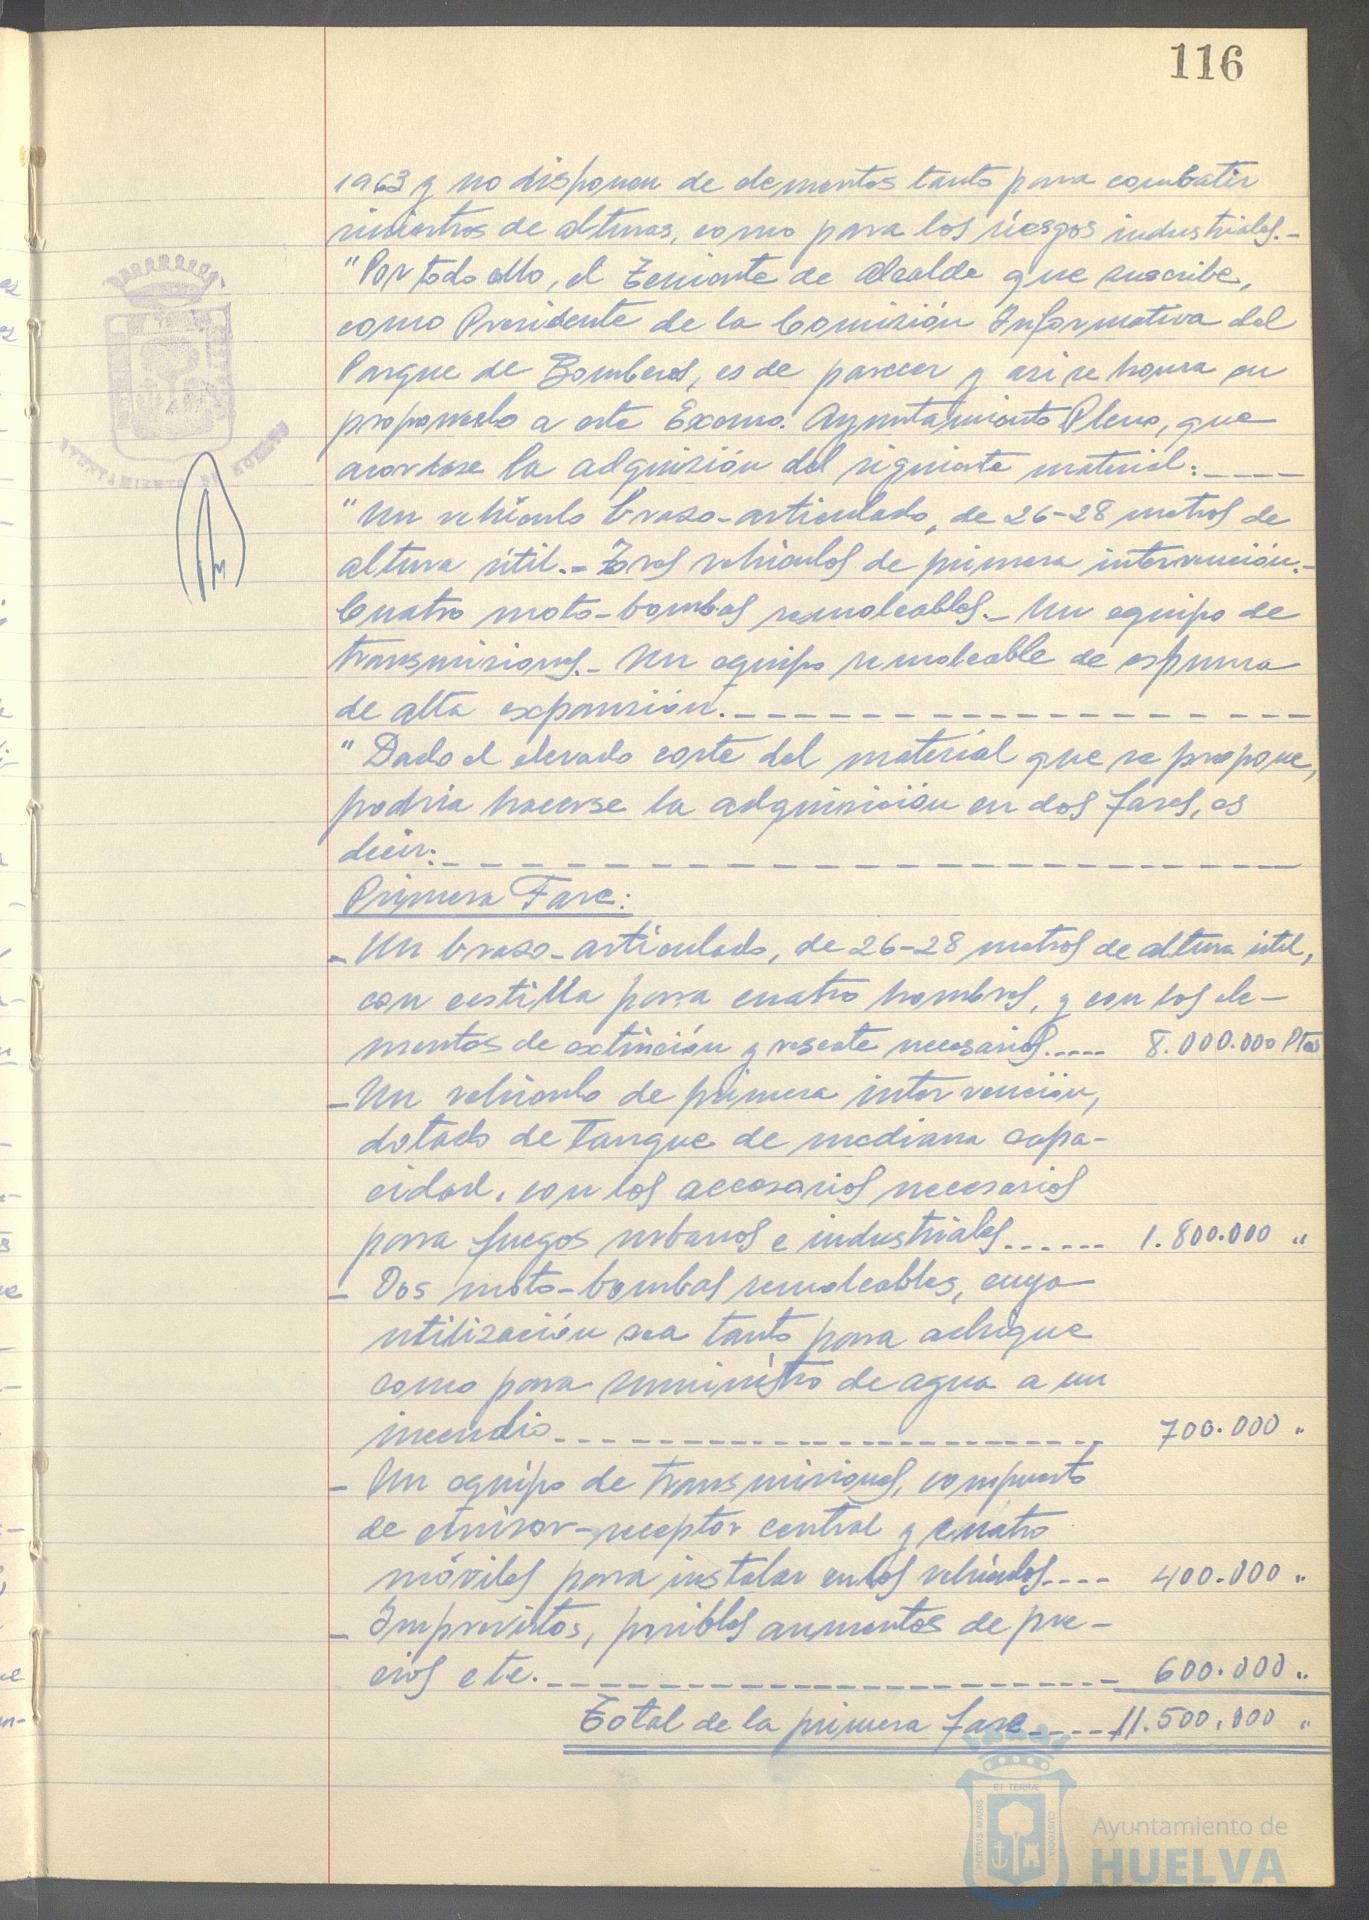 116
1963 y no disponen de elementos tanto para combatir
siniestros de alturas, como para los riesgos industriales.-
"Por todo ello, el Teniente de Alcalde que suscribe,
como Presidente de la Comisión Informativa del
Parque de Bomberos, es de parecer y así se honra en
proponerlo a este Excmo. Ayuntamiento Pleno, que
acordase la adquisición del siguiente material:----
"Un vehículo brazo-articulado, de 26-28 metros de
altura útil.- Tres vehículos de primera intervención.-
Cuatro moto-bombas remolcables.- Un equipo de
transmisiones.- Un equipo remolcable de espuma
de alta expansión.----------------
"Dado el elevado coste del material que se propone,
podría hacerse la adquisición en dos fases, es
decir:----------------------
Primera Fase:
- Un brazo-articulado, de 26-28 metros de altura útil,
con cestilla para cuatro hombres, y con los ele-
mentos de extinción y rescate necesarios..... 8.000.000 Ptas
- Un vehículo de primera intervención,
dotado de tanque de mediana capa-
cidad, con los accesorios necesarios
para fuegos urbanos e industriales...... 1.800.000 "
- Dos moto-bombas remolcables, cuya
utilización sea tanto para achique
como para suministro de agua a un
incendio---------------------- 700.000 "
- Un equipo de transmisiones, compuesto
de emisor-receptor central y cuatro
móviles para instalar en los vehículos.---- 400.000 "
- Imprevistos, posibles aumentos de pre-
cios etc.---------------------- 600.000 "
Total de la primera fase----- 11.500.000 "
AYUNTAMIENTO DE HUELVA
PORTUS MARIS
ET TERRÆ
CUSTODIA
Ayuntamiento de
HUELVA